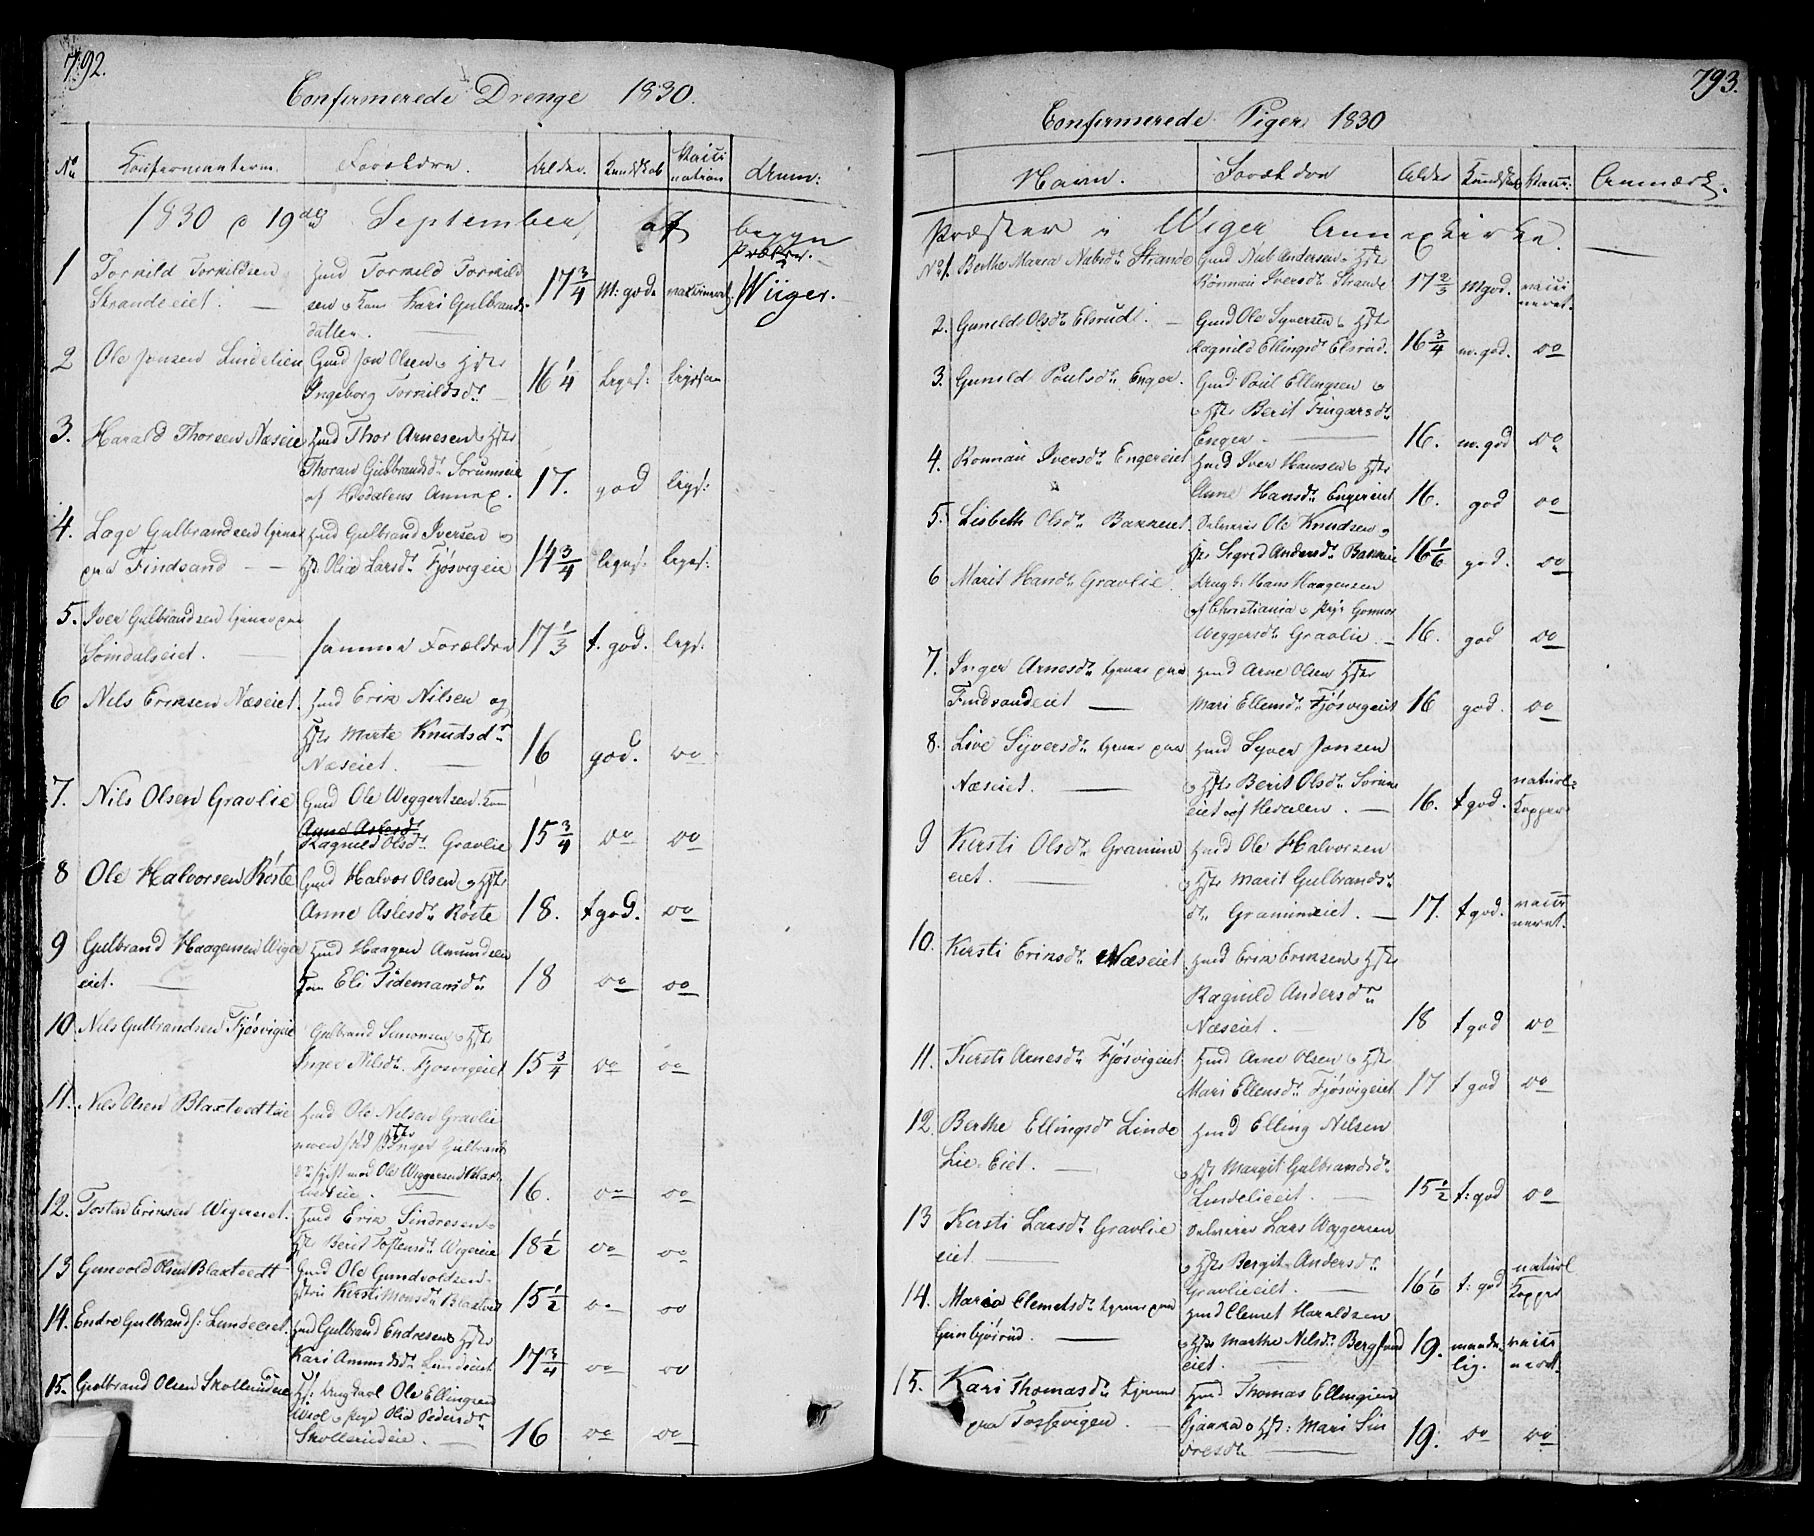 792.
Confirmerede Drenge 1830.
No Konfirmanterne. Forældre. Alder. Kundskab Vacci nation Anm:
1830 d 19de September, af begyn Præster.
1 Torkild Torkildsen Huusmd Torkild Torkild 17 3/4 M: god. vaxineret. Wiiger.
Strandeeiet. — sen & Kone Kari Gulbrands
datter. —
2 Ole Jonsen Lindelien Gmd Jon Olsen & Hstr
Ingeborg Torkildsdr — 16 1/4 ligesaa
3. Harald Thorsen Næseie Hmd Thor Arnesen & Hstr
Thorand Gulbrandsdr Sorumseie
af Hedalens Annex. 17. god ligs:
4. Lage Gulbrandsen tjener Hmd Gulbrand Iversen &
paa Findsand — — Hst: Olia Larsdr Fjøsvigeie 14 3/4 liges: liges:
5. Iver Gulbrandsen tjener paa
Somdalseiet. — samme Forældre 17 1/3 t. god. ligs:
6 Nils Eriksen Næseiet. Hmd Erik Nilsen og
Hstr Marte Knudsdr
Næseiet. — 16 god. do
7. Nils Olsen Gravlie Gmd Ole Weggertsen. Kone
Ragnild Olsdr Gravlie 15 3/4 do do
8 Ole Halvorsen Røste Gmd Halvor Olsen & Hstr
Anne Aslesdr Røste 18. t god. do
9 Gulbrand Haagensen Wiger Hmd Haagen Amundsen
eiet. — Kone Eli Tidemansdr 18 do do
10. Nils Gulbrandsen Fjøsvigeie Gulbrand Simonsen & Hstr
Inger Nilsdr. Fjøsvigeiet 15 3/4 do do
11. Nils Olsen Blaxtvedteie Hmd Ole Nilsen Gravlie
Hstr Inger Gulbrands
dr gift med Ole Weggersen Blax-
tvedteie. — 16. do do
12. Tosten Eriksen Wigereiet. Hmd Erik Sindresen &
Hst Berit Tostensdr Wigereie 18 1/2 do do
13 Gunvold Olsen Blaxtvedt Gmd Ole Gundvoldsen
Hstru Kirsti Monsdr Blaxtvedt 15 1/2 do do
14. Endre Gulbrands: Lundeeiet. Hmd Gulbrand Endresen & Hstr
Kari Amundsdr Lundeiet 17 3/4 do do
15. Gulbrand Olsen Skollerudeie Ungkarl Ole Ellingsen
& Pige Olia Pedersdr
Skollerudeie. — 16 do do
793.
Confirmerede Piger 1830
Navn. Forældre Alder Kundskab Vacci: Anmærk.
Præster i Wiger Annexkirke. —
No 1. Berthe Maria Nubsdr Strande Gmd Nub Andersen & Hstr
Rønnau Iversdr Strande 17 2/3 M god. vacci
neret.
2. Gunild Olsdr Elsrud. — Gmd Ole Syversen & Hstr
Ragnild Ellingsdr Elsrud. 16 3/4 m. god. do
3. Gunild Poulsdr Enger. Gmd Poul Ellingsen &
Hstr Berit Fingarsdr
Enger. — 16. m. god do
4. Ronnau Iversdr Engereiet Hmd Iver Hansen & Hstr
Anne Hansdr Engereiet 16. god do
5. Lisbeth Olsdr Bakkeiet Selveier Ole Knudsen &
Hstr Sigrid Andersdr Bakkeie 16 1/6 god. do
6 Marit Hansdr Gravlie. Ungk. Hans Haagensen
af Christiania & Pige Gunnor
Weggersdr Gravlie. — 16. god do
7. Inger Arnesdr tjener paa Hmd Arne Olsen Hstr
Findsandeiet — Mari Ellensdr Fjøsvigeiet 16 god. do
8. Live Syversdr tjener paa Hmd Syver Jonsen
Næseiet. — & Hstr Berit Olsdr Sorum
eiet af Hedalen. — 16. t god. naturl:
Kopper
9 Kirsti Olsdr Gramind Hmd Ole Halvorsen
eiet. — & Hstr Marit Gulbrands
dr Gramineiet. — 17. t god. vacci
neret.
10. Kirsti Eriksdr Næseiet Hmd Erik Eriksen & Hstr
Ragnild Andersdr
Næseiet. — 18 t god do
11. Kirsti Arnesdr Fjøsvigeiet Hmd Arne Olsen & Hstr
Mari Ellensdr Fjøsvigeiet 17 t god do
12. Berthe Ellingsdr Linde Hmd Elling Nilsen
Lie-Eiet. — & Hst Margit Gulbrandsdr
Lindelieeit. — 15 1/2 t: god do
13 Kirsti Larsdr Gravlie Selveier Lars Weggersen
eiet — & Hstr Bergit Andersdr
Gravlieeiet. — 16 1/6 t: god naturl
Kopper
14. Maria Clemetsdr tjener paa Hmd Clemet Haraldsen
Grinbjörud. — & Hstr Marthe Nilsdr Bergsrud
eiet. — 19. maade
lig. vacci
neret.
15. Kari Thomasdr tjener Hmd Thomas Ellingsen
paa Tossevigen. — & Hst: Mari Sin
dresdr — 19. do do